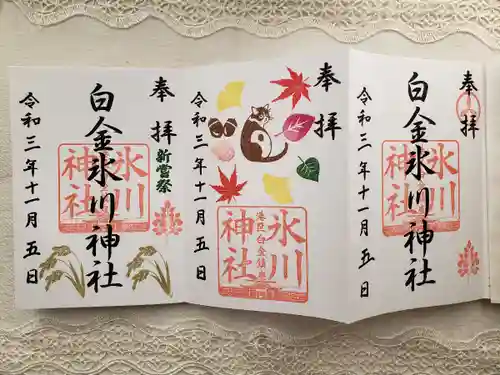 奉拝
新嘗祭
白金氷川神社
氷川神社
令和三年十一月五日
奉拝
氷川神社
令和三年十一月五日
奉拝
白金氷川神社
氷川神社
令和三年十一月五日